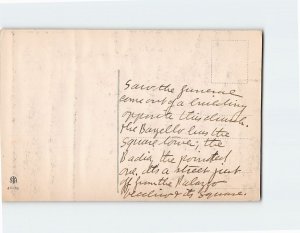 Saw the funeral
come out of a building
opposite this church.
the Bargello has the
square tower, the
Badia the pointed
one, its a street just
off from the Palazzo
Vecchio & its Square.